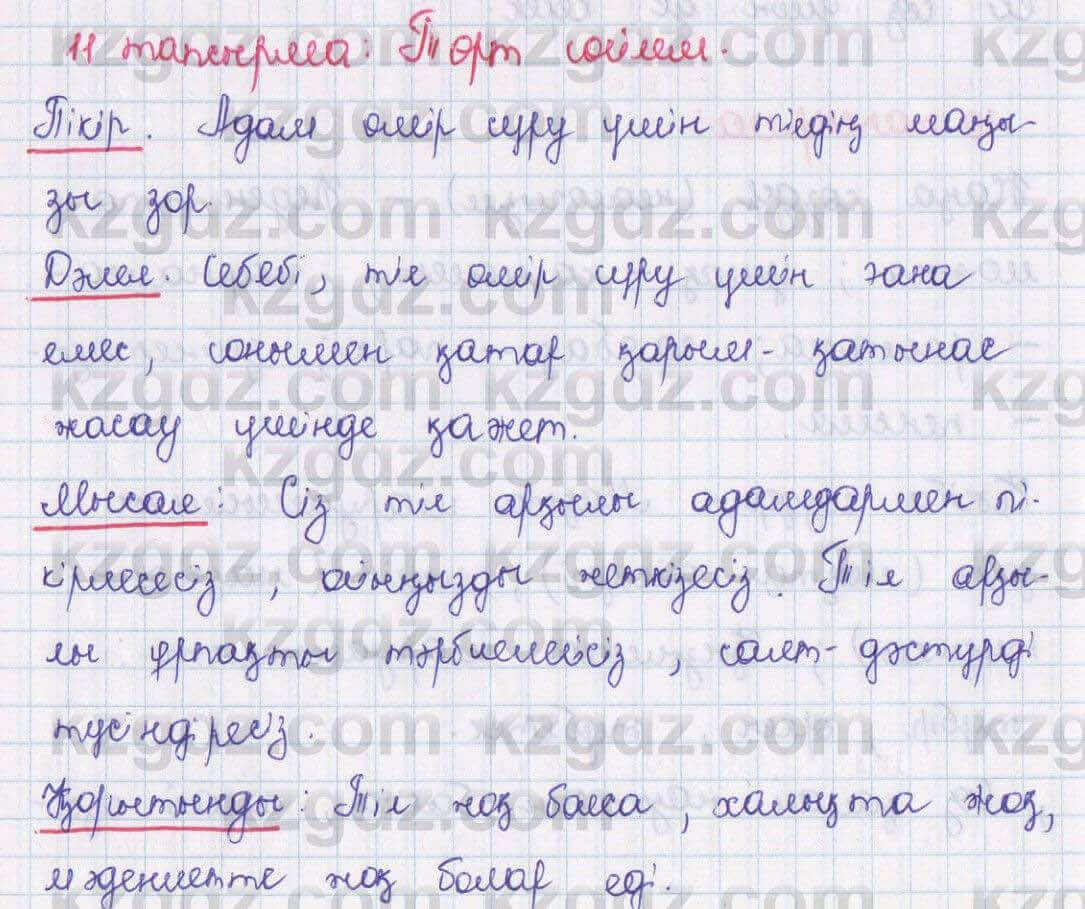 11 тапсырма: Төрт сөйлем.
Пікір. Адам өмір сүру үшін тілдің маңы-
зы зор.
Дәлел. Себебі, тіл өмір сүру үшін ғана
емес, сонымен қатар қарым-қатынас
жасау үшінде қажет.
Мысал: Сіз тіл арқылы адамдармен пі-
кірлесесіз, ойыңызды жеткізесіз. Тіл арқы-
лы ұрпақты тәрбиелейсіз, салт-дәстүрді
түсіндіресіз.
Қорытынды: Тіл жоқ болса, халықта жоқ,
мәдениетте жоқ болар еді.
kzgdz.com